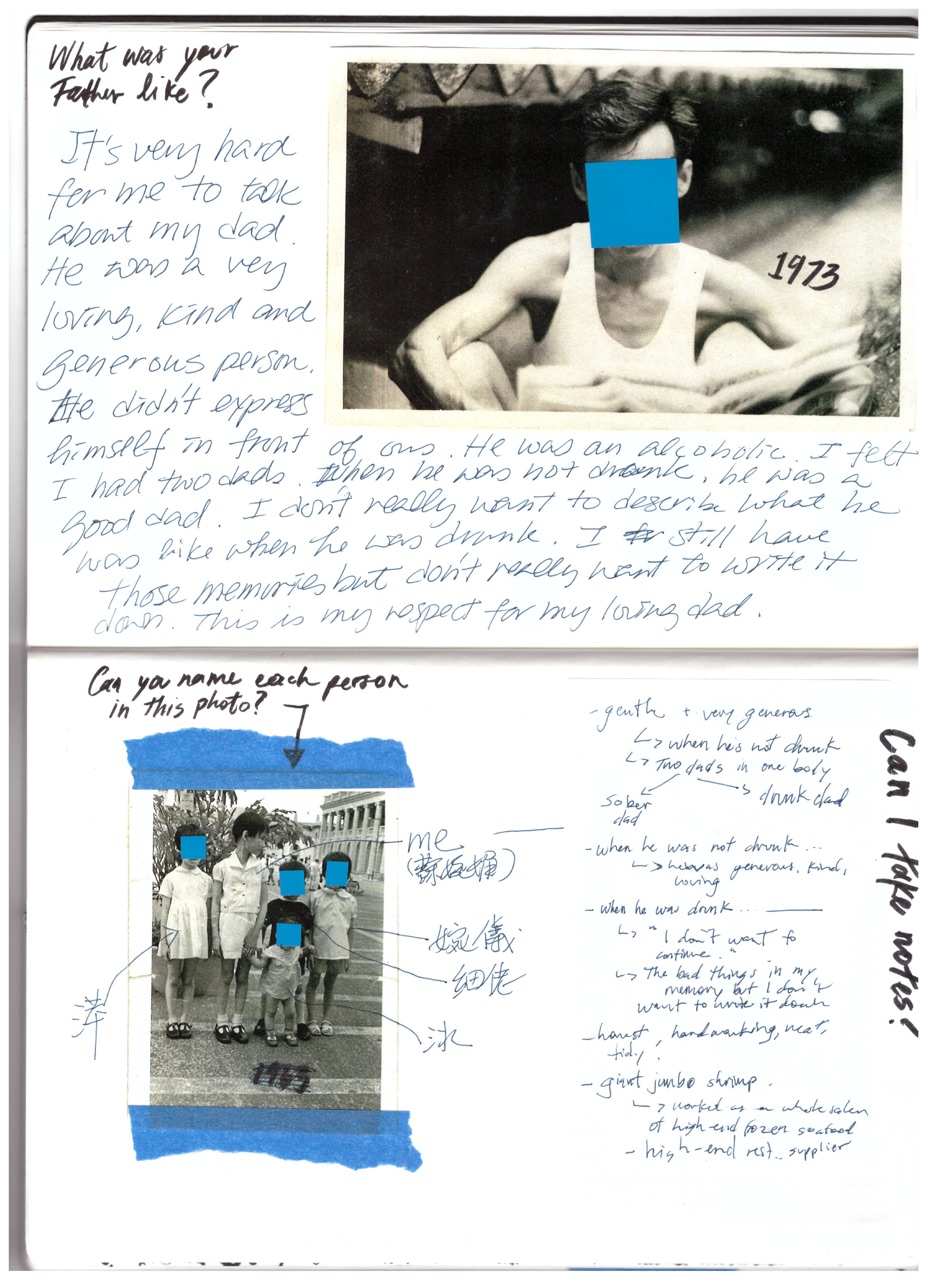 What was your
Father like?
It's very hard
for me to talk
about my dad.
He was a very
loving, kind and
generous person.
He didn't express
himself in front of ous. He was an alcoholic. I felt
I had two dads. When he was not drunk, he was a
good dad. I don't really want to describe what he
was like when he was drunk. I still have
those memories but don't really want to write it
down. This is my respect for my loving dad.
1973
Can you name each person
in this photo?
me
婉儀
細佬
泳
萍
1965
Can I take notes?
- gentle + very generous
↳ when he's not drunk
↳ Two dads in one body
sober
dad
drunk dad
- when he was not drunk...
↳ he was generous, kind,
loving
- when he was drunk...
↳ "I don't want to
continue."
↳ The bad things in my
memory but I don't
want to write it down
- honest, hardworking, neat,
tidy.
- giant jumbo shrimp.
↳ worked as a wholesaler
of high-end frozen seafood
- high-end rest. supplier